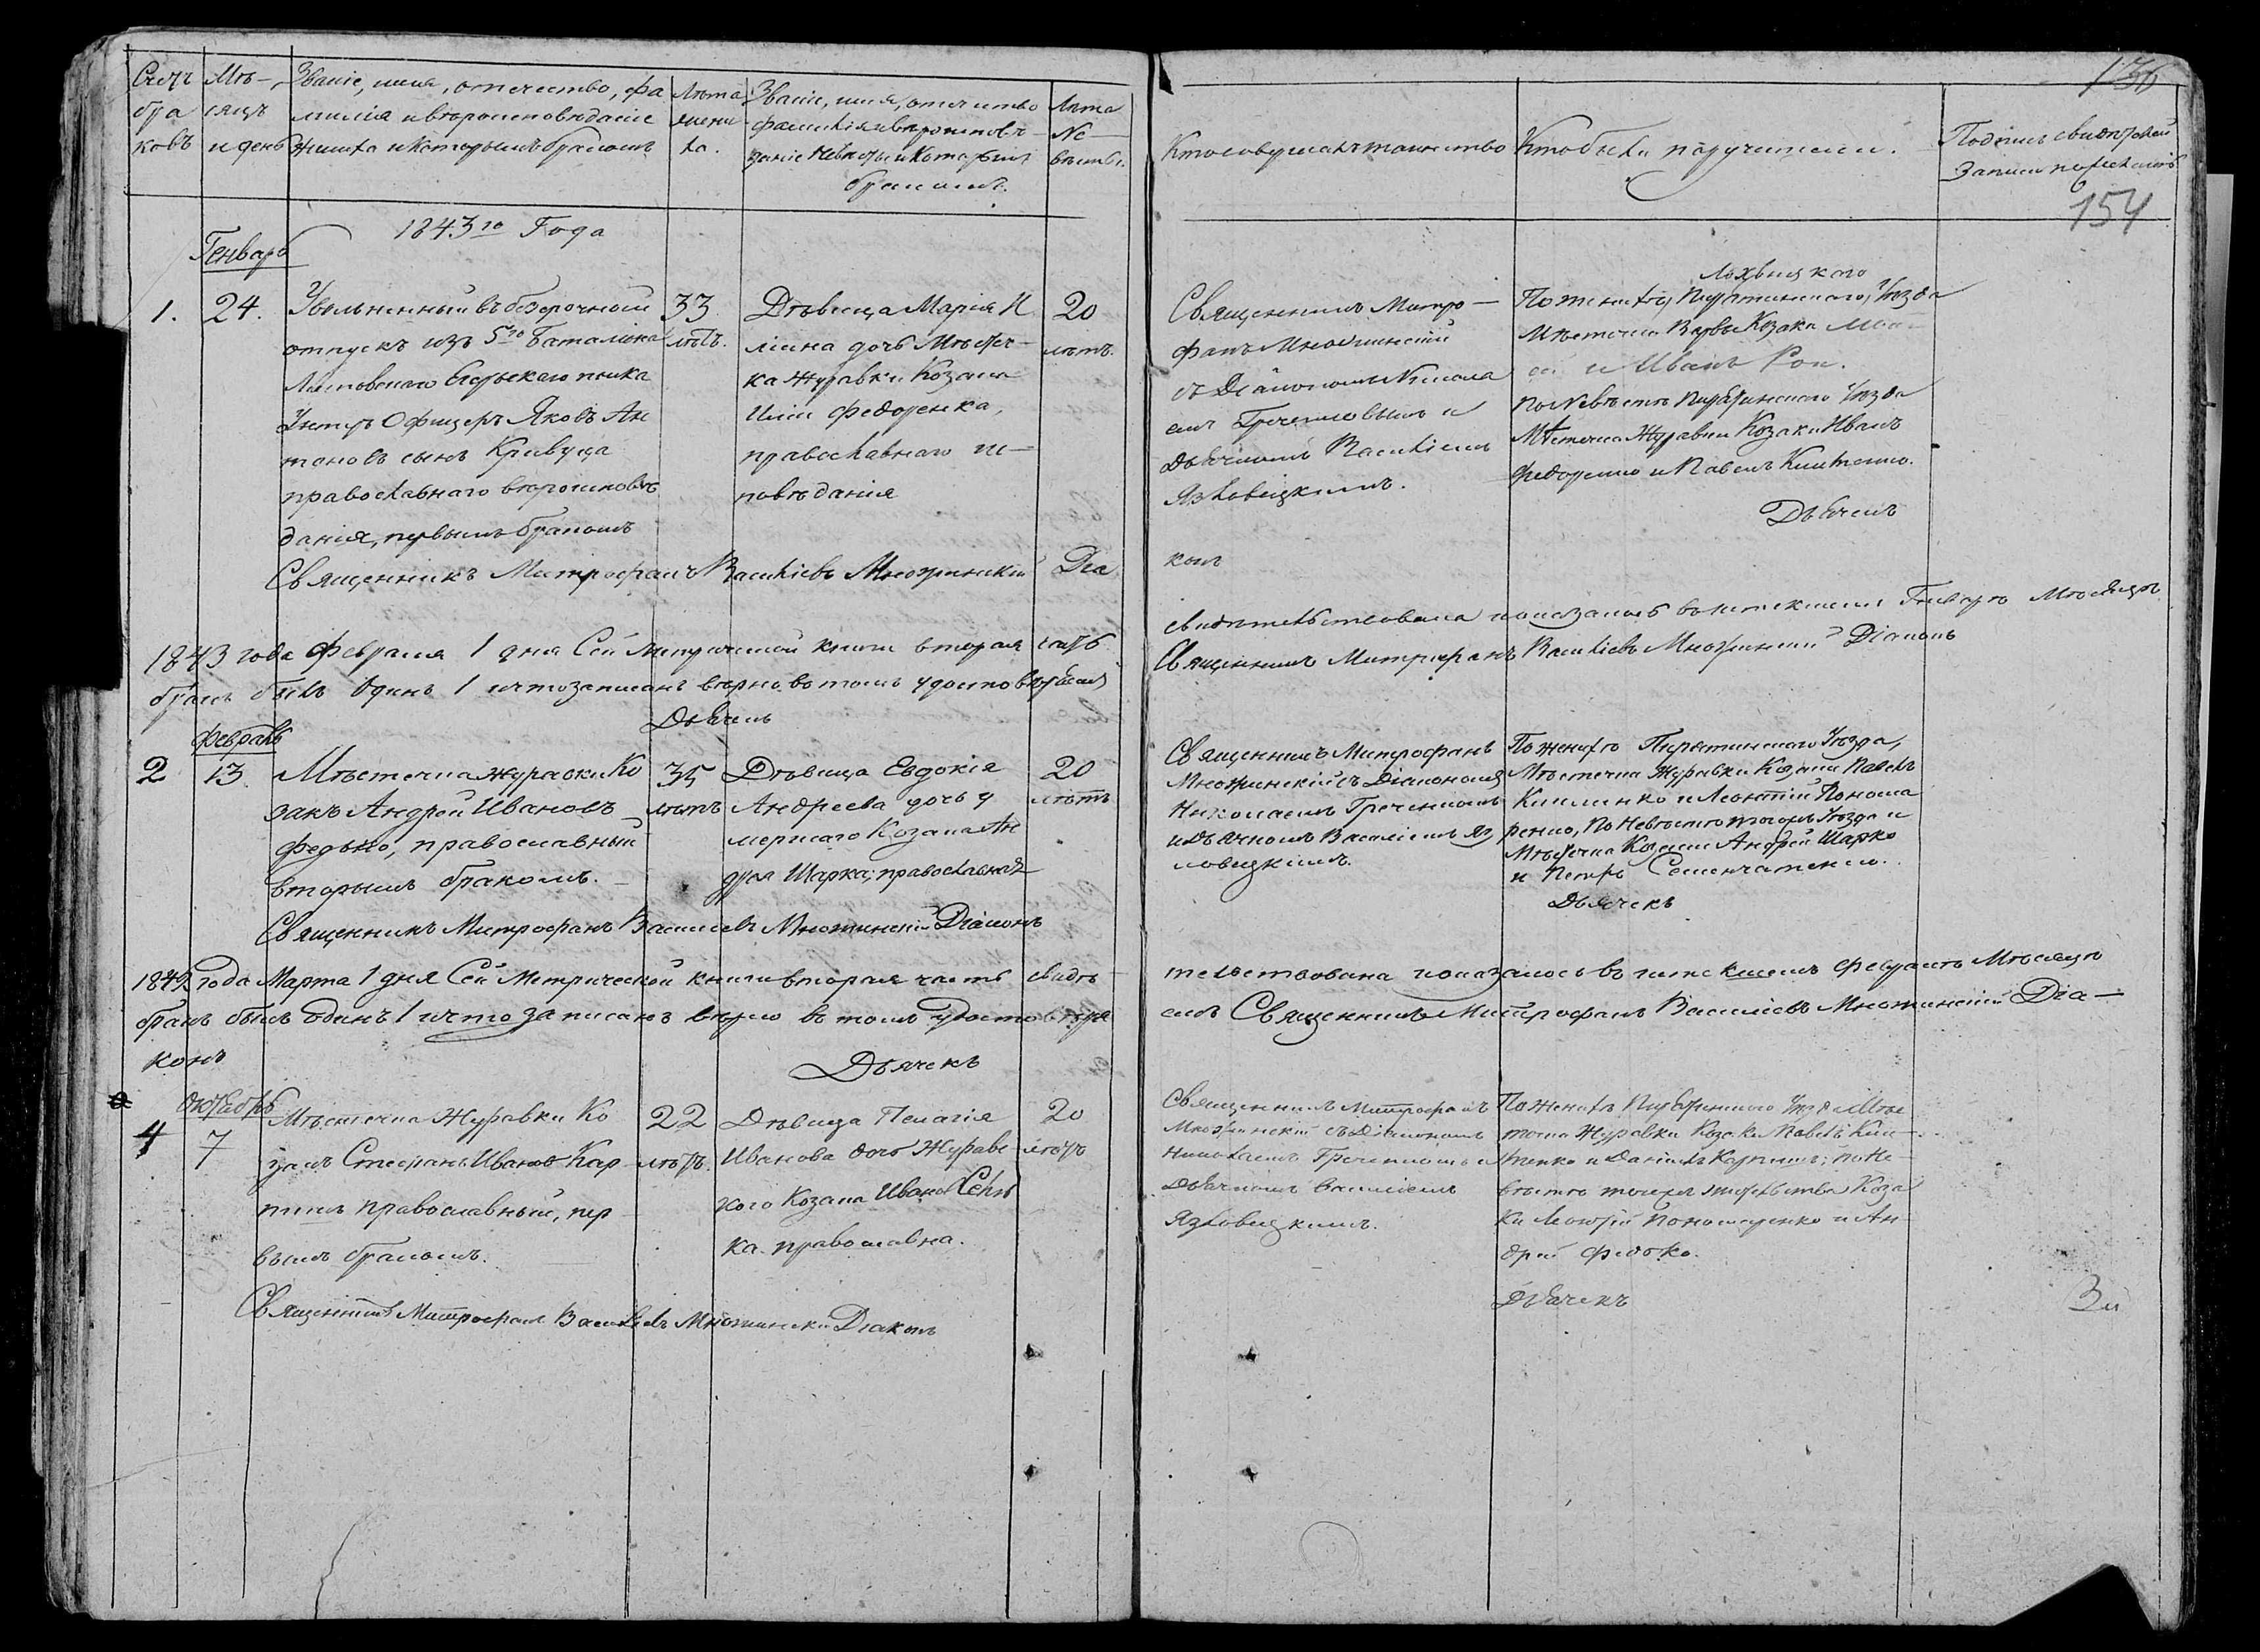 Счетъ бра ковъ
Мѣ- сяцъ и день
Званіе, имя, отечество, фа
милія и вѣроисповѣданіе
жениха и которымъ бракомъ
Лѣта жени ха.
Званіе, имя, отечество
фамилія и вѣроисповѣ-
даніе невѣсты и которымъ
бракомъ.
Лѣта Не вѣсты.
Кто совершалъ таинство
Кто были поручители.
Подпись свидѣтелей
Записи по желанію
136
154
1843го Года
Генварь
1.
24.
Увольненный въ безсрочной
отпускъ изъ 5го Баталіона
Литовскаго Егерскаго полка
Унтеръ Офицеръ Яковъ Ан
тоновъ сынъ Кривуца
православнаго вѣроисповѣ
данія, первымъ бракомъ
33
лѣтъ.
Дѣвица Марія И
ліина дочь Мѣстеч-
ка Журавки Козака
Иліи Федоренка,
православнаго ис-
повѣданія
20
лѣтъ.
Священникъ Митро-
фанъ Многинскій
съ Діакономъ Никола
емъ Греченковымъ и
Дьячкомъ Василіемъ
Язловицкимъ.
Лохвицкаго
По женихѣ, Пирятинскаго, Уѣзда
Мѣстечка Варвы Козаки
и Иванъ
По Невѣстѣ Пирятинскаго Уѣзда
Мѣстечка Журавки Козаки Иванъ
Федоренко и Павелъ
Дьячекъ
Священникъ Митрофанъ Василіевъ Многинскій Діа
конъ
1843 года Февраля 1 дня Сей метрической книги вторая часть
свидѣтельствована и оказалось во истекшемъ Генварѣ Мѣсяцѣ
бракъ былъ одинъ 1 и что записанъ вѣрно въ томъ удостовѣряемъ
Священникъ Митрофанъ Василіевъ Многинскій Діаконъ
Дьячекъ
Февраль
2
13.
Мѣстечка Журавки Ко
закъ Андрей Ивановъ
Федько, православный
вторымъ бракомъ.
35
лѣтъ
Дѣвица Евдокія
Андреева дочь у
мершаго Козака Ан
дрея Шарка; православная
20
лѣтъ
Священникъ Митрофанъ
Многинскій съ Діакономъ
Николаемъ Греченкомъ
и дьячкомъ Василіемъ Яз
ловицкимъ.
По женихѣ Пирятинскаго Уѣзда,
Мѣстечка Журавки Козаки Павелъ
и Леонтій Понома
ренко, По Невѣстѣ тогожъ Уѣзда и
Мѣстечка Козаки Андрей Шарко
и Петръ
Дьячекъ
Священникъ Митрофанъ Василіевъ Многинскій Діаконъ
1843 года Марта 1 дня Сей Метрической книги вторая часть свидѣ
тельствована и оказалось во истекшемъ Февралѣ Мѣсяцѣ
бракъ былъ одинъ 1 и что записанъ вѣрно въ томъ удостовѣря
емъ Священникъ Митрофанъ Василіевъ Многинскій Діа-
конъ
Дьячекъ
Октябрь
4
7
Мѣстечка Журавки Ко
закъ Стефанъ Ивановъ Кар
пихъ православный, пер
вымъ бракомъ.
22
лѣтъ.
Дѣвица Пелагія
Иванова дочь Журавс
кого Козака Ивана
ка. православна.
20
лѣтъ
Священникъ Митрофанъ
Многинскій съ Діакономъ
Николаемъ Греченкомъ и
Дьячкомъ Василіемъ
Язловицкимъ.
По Женихѣ Пирятинскаго Уѣзда Мѣс
течка Журавки Козаки Павелъ
и Даніилъ по Не
вѣстѣ тогожъ жительства Коза
ки Леонтій Пономаренко и Ан
дрей Федько.
Дьячекъ
Священникъ Митрофанъ Василіевъ Многинскій Діаконъ